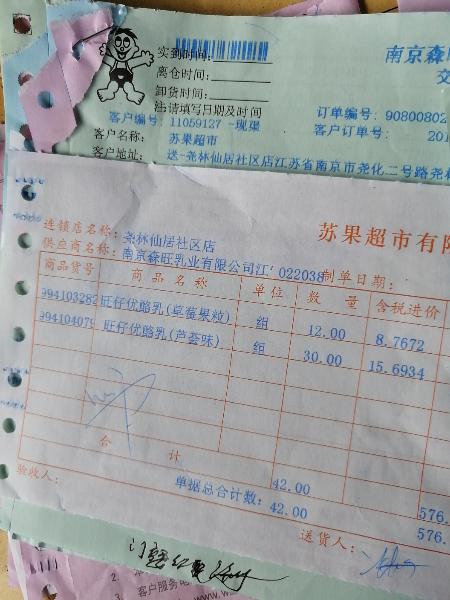 实到时间:
南京森
离仓时间:
交
卸货时间:
注:请填写日期及时间
订单编号: 90800802
客户编号: 11059127 -现渠
客户订单号: 201
客户名称: 苏果超市
客户地址: 送-尧林仙居社区店江苏省南京市尧化二号路尧林
苏果超市有限
连锁店名称: 尧林仙居社区店
供应商名称: 南京森旺乳业有限公司江' 022038 制单日期:
商品货号 商品名称 单位 数量 含税进价
994103282 旺仔优酪乳(草莓果粒) 组 12.00 8.7672
994104079 旺仔优酪乳(芦荟味) 组 30.00 15.6934
合计 42.00 576.
验收人: 单据总合计数: 42.00 576.
送货人:
2.
3. 客户服务
www.w